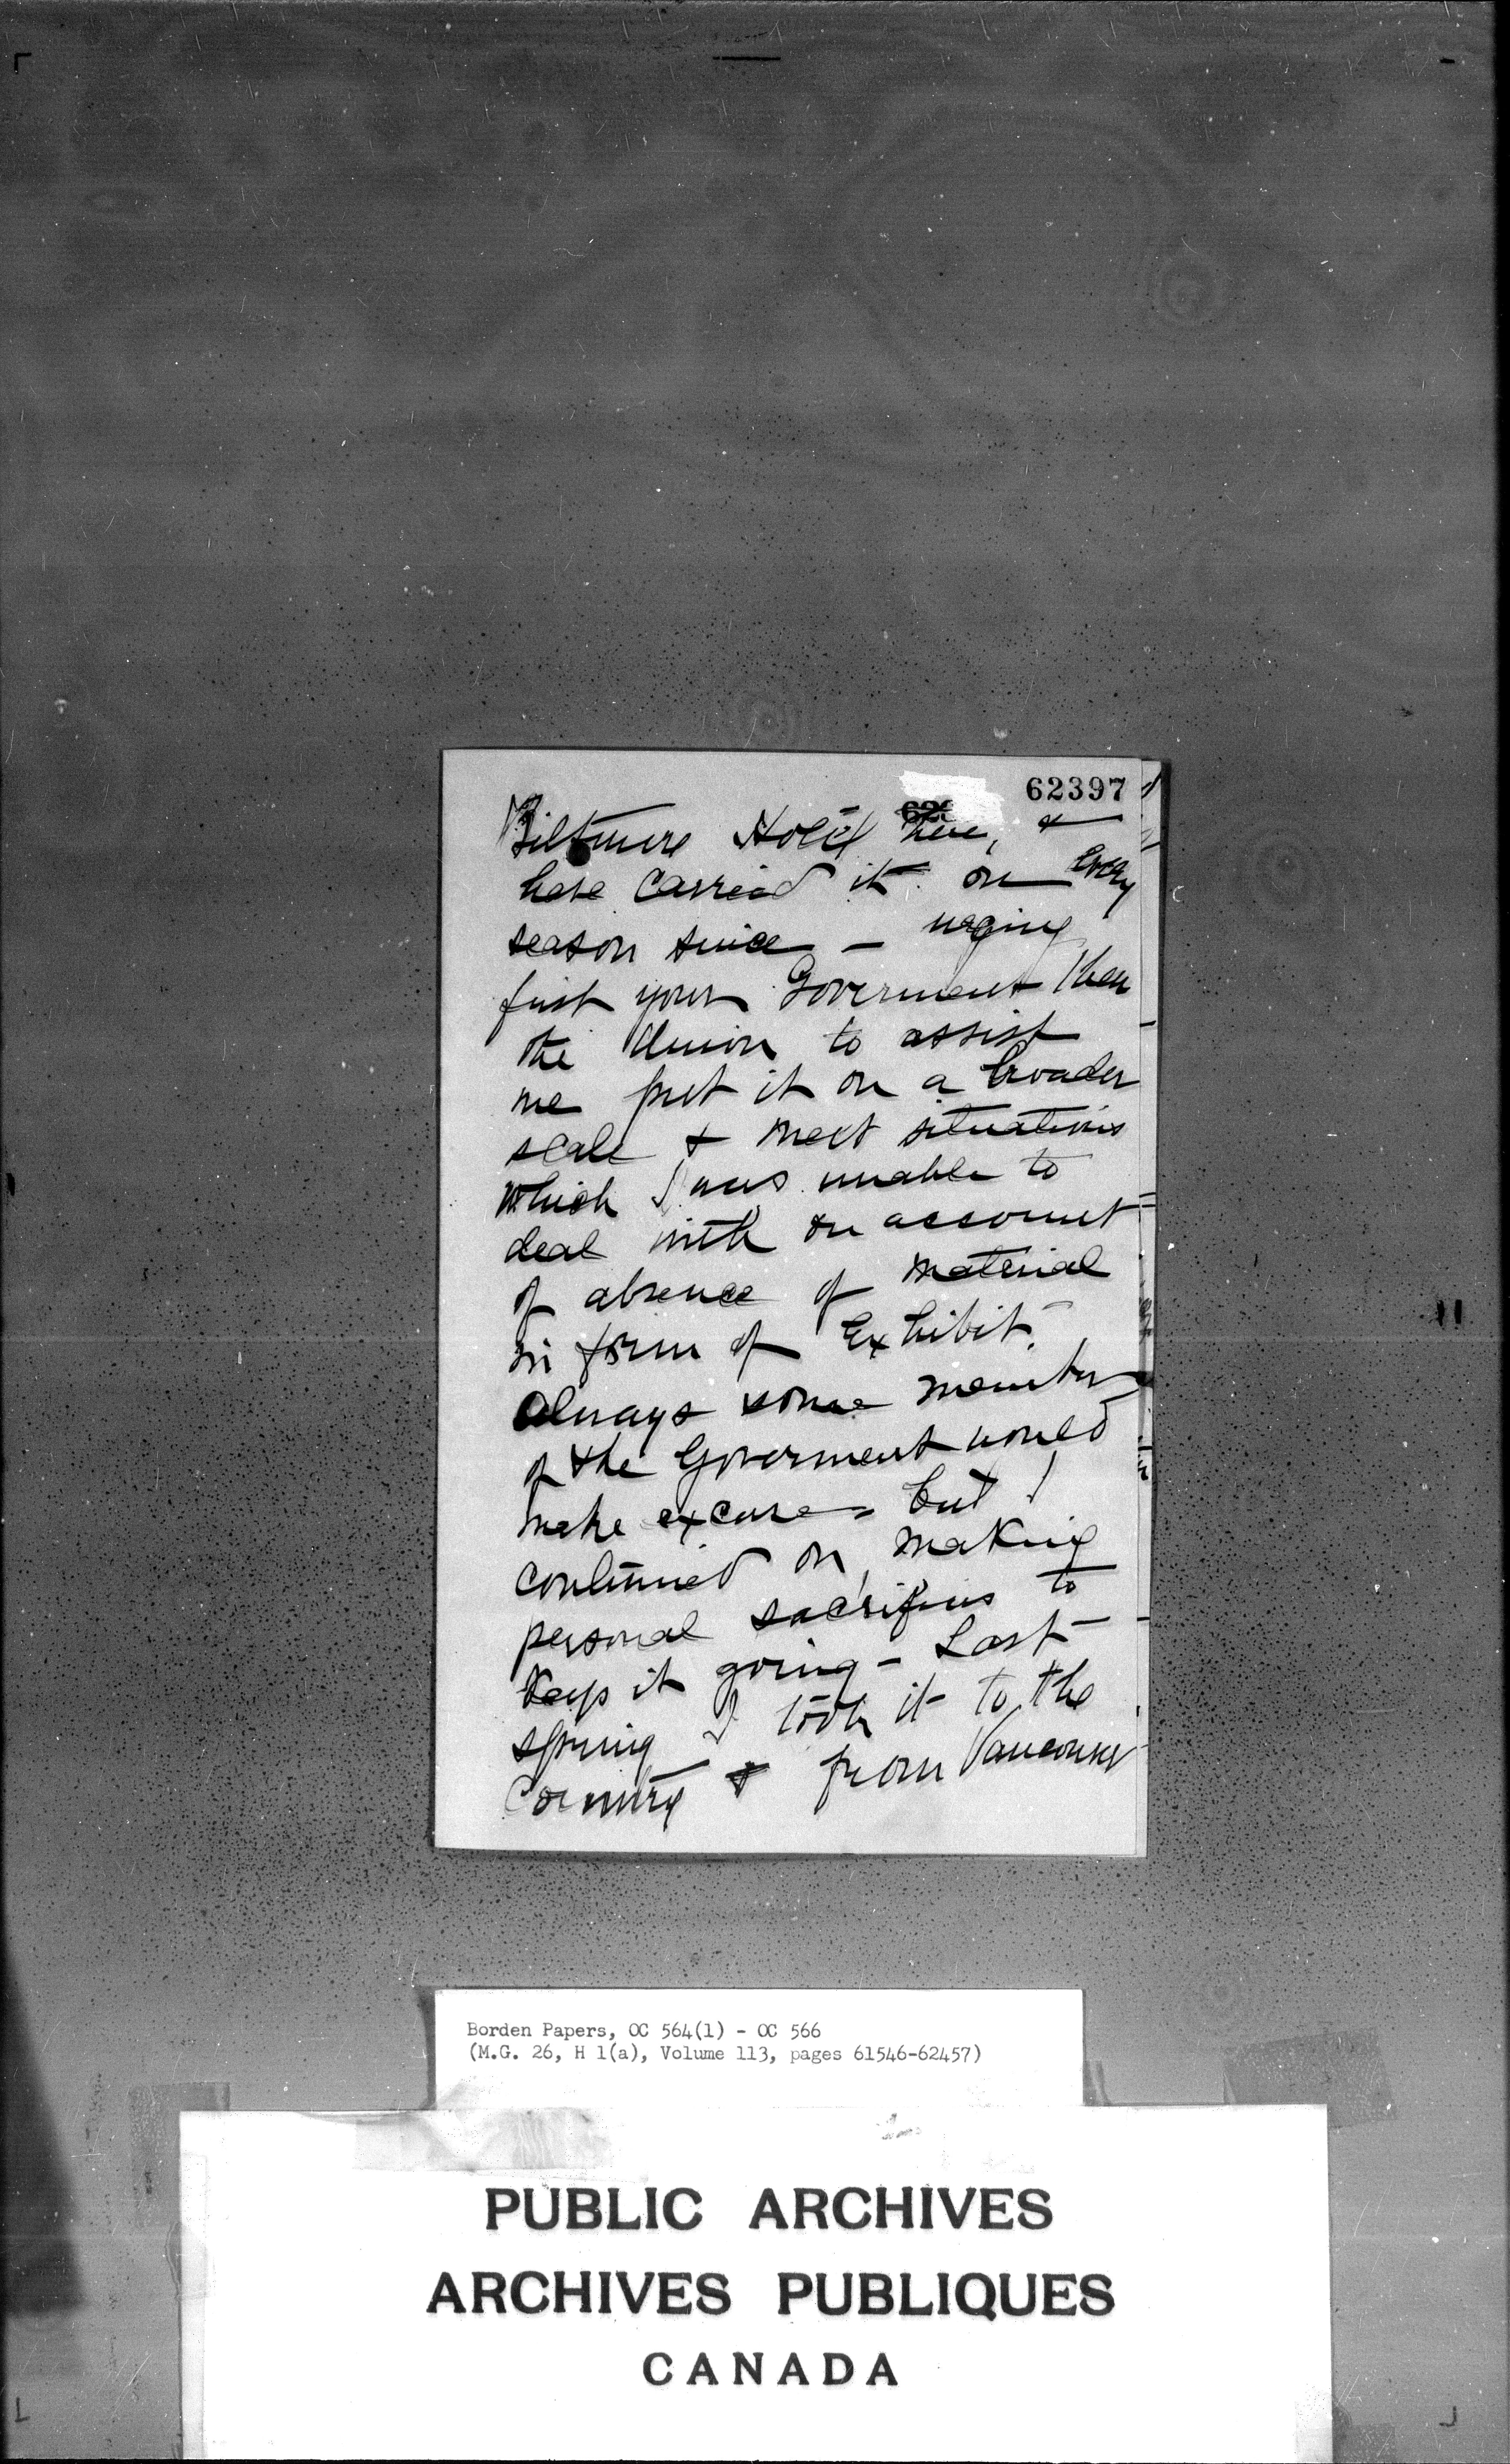 62397
Biltmore Hotel here, &
have carried it on every
season since — urging
first your Goverment then
the Union to assist
me put it on a broader
scale & meet situations
which I was unable to
deal with on account
of absence of material
in form of Exhibit.
Always some member
of the Goverment would
make excuses but I
continued on, making
personal sacrifices to
keep it going — Last
spring I took it to the
Country & from Vancouver
Borden Papers, OC 564(1) - OC 566
(M.G. 26, H 1(a), Volume 113, pages 61546-62457)
PUBLIC ARCHIVES
ARCHIVES PUBLIQUES
CANADA